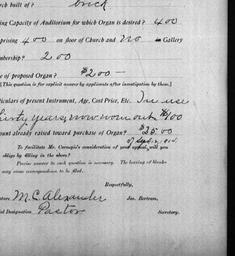 rch built of? brick
ing Capacity of Auditorium for which Organ is desired? 400
prising 400 on floor of Church and no in Gallery
mbership? 200
e of proposed Organ? $200 —
[This question is for explicit answer by applicants after investigation by them.]
rticulars of present Instrument, Age, Cost Price, Etc. In use
thirty years, now worn out $100
ount already raised toward purchase of Organ? $25.00
To facilitate Mr. Carnegie's consideration of your appeal, will you
oblige by filling in the above?
Precise answer to each question is necessary. The leaving of blanks
may cause correspondence to be filed.
Respectfully,
ature M. C. Alexander Jas. Bertram,
ial Designation Pastor Secretary.